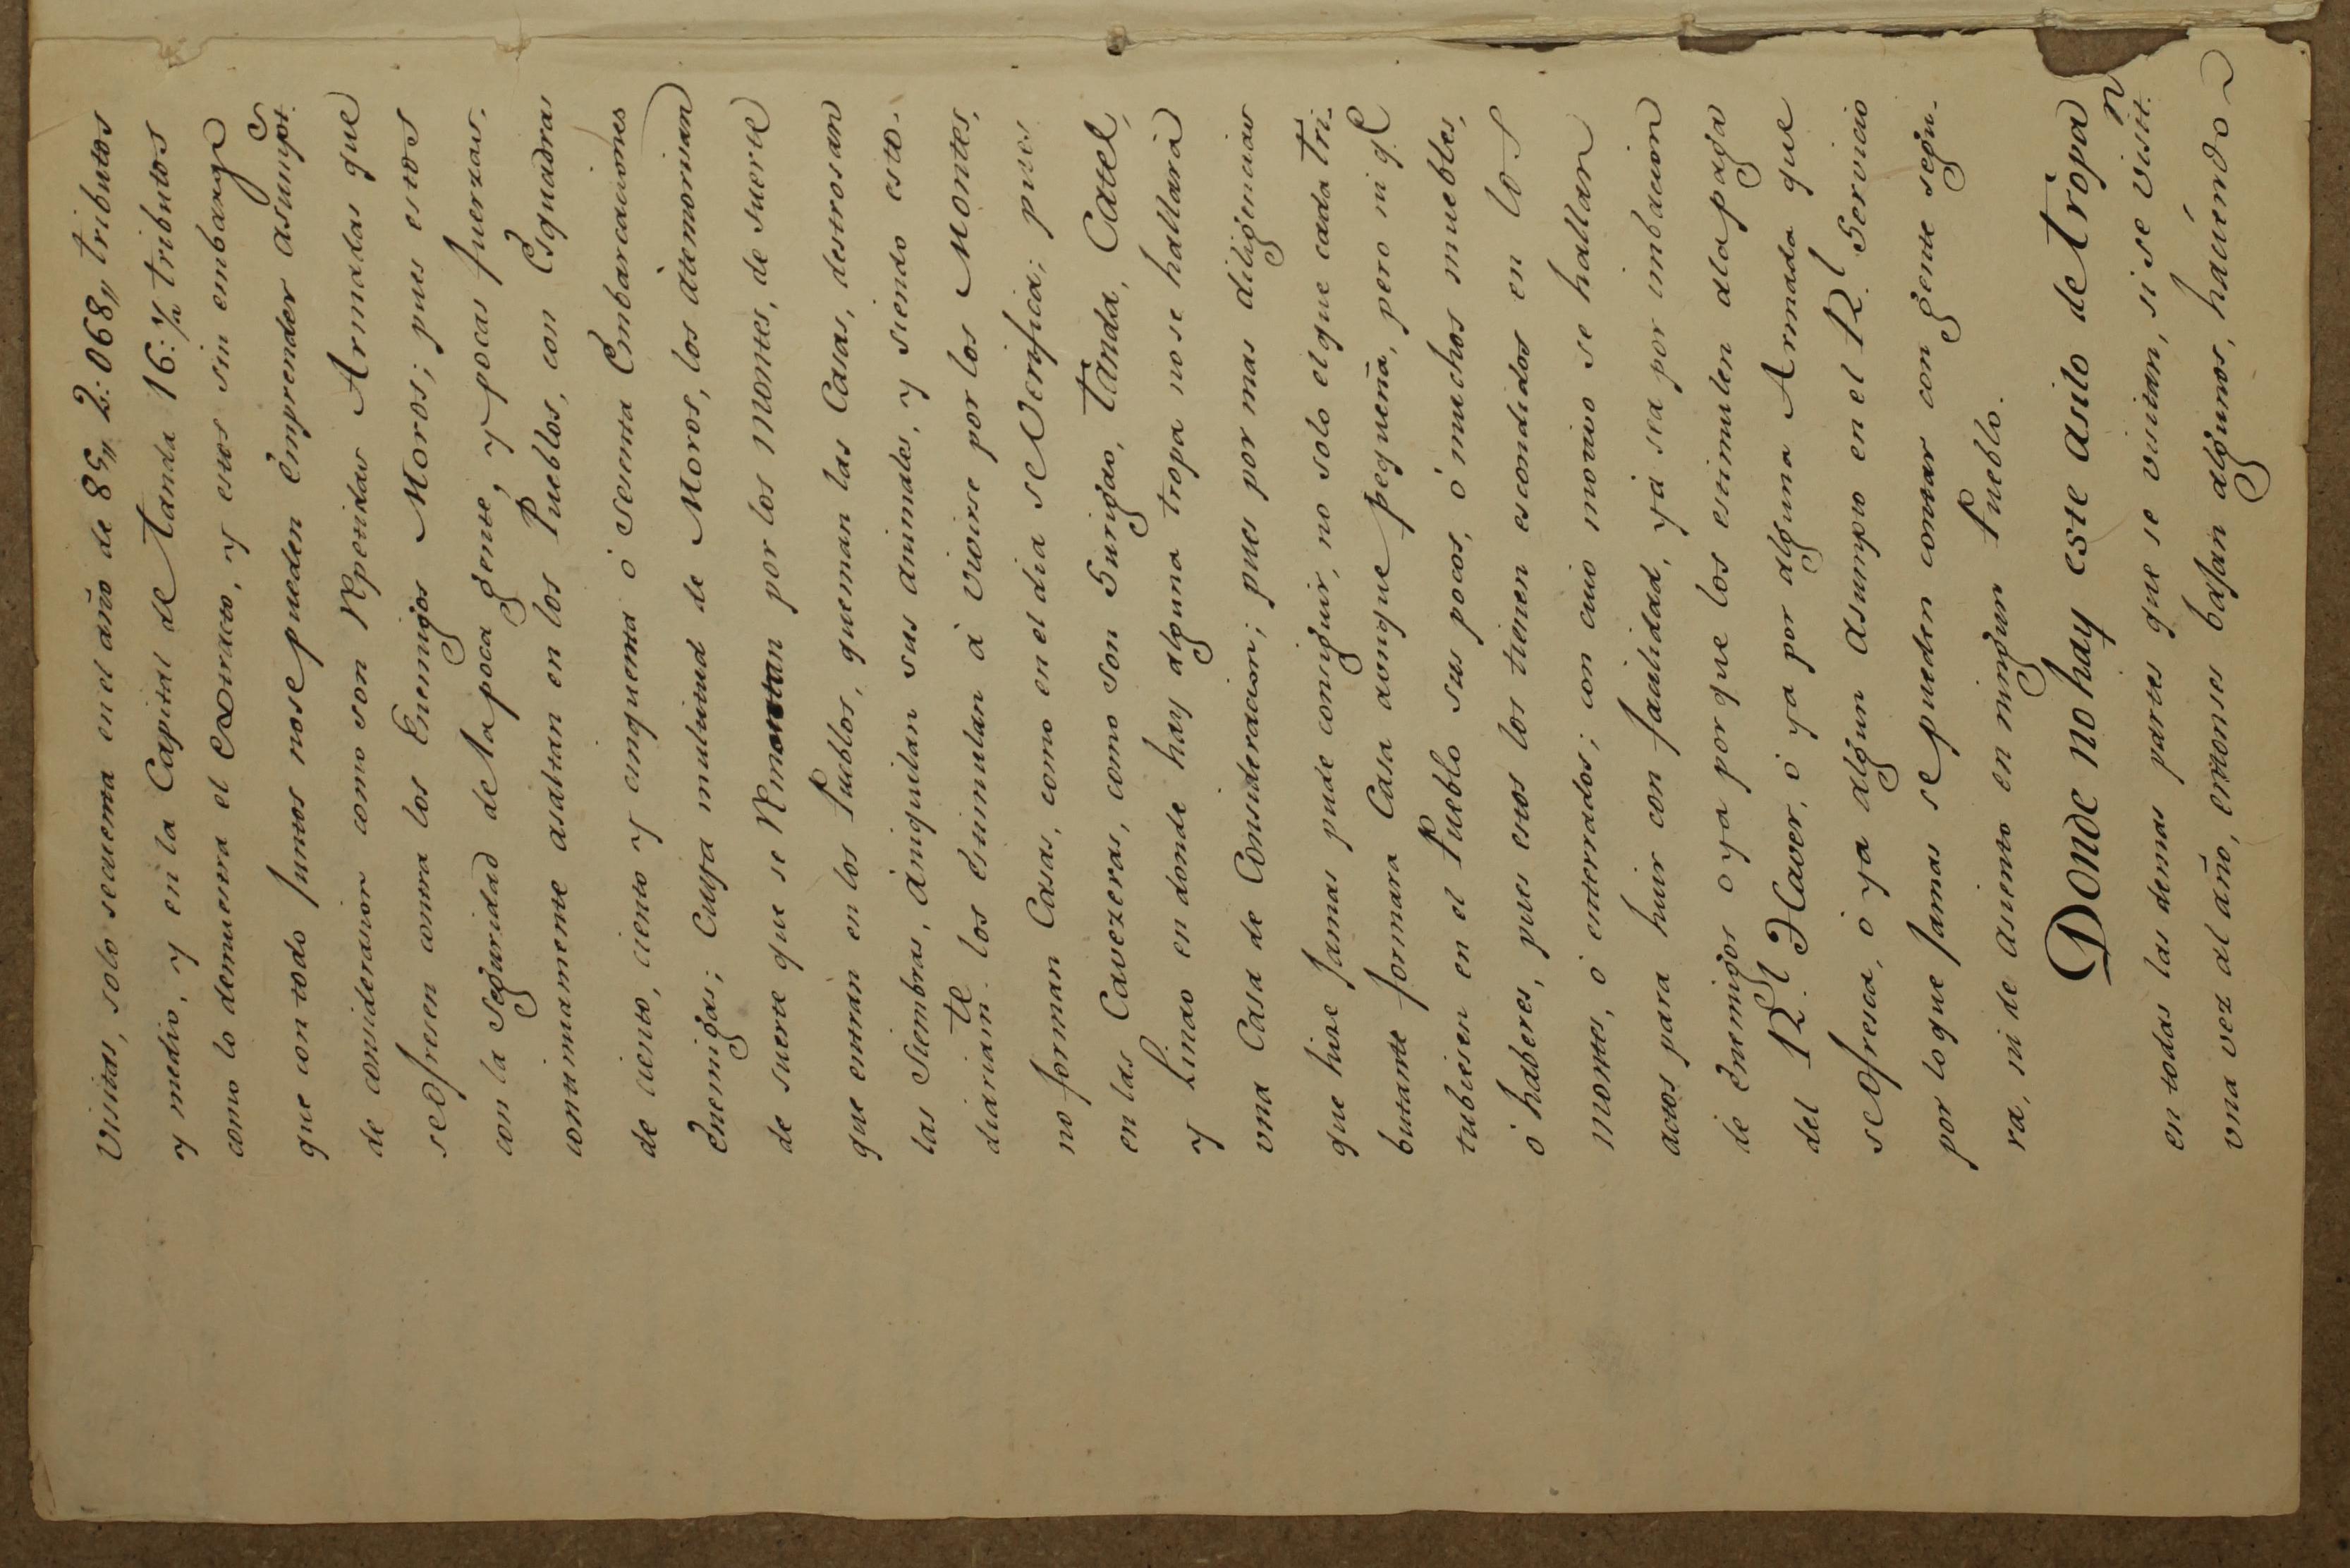 Visitas, solo se cuenta en el año de 85,, 2:068,, tributos
y medio, y en la Capital de Tanda 16: tributos
como lo demuestra el Extracto, y estos sin embargo
que con todo juntos no se pueden emprender asumptos
de consideracion como son Repetidas Armadas que
se ofresen contra los Enemigos Moros; pues estos
con la seguridad de la poca gente, y pocas fuerzas,
continuamente asaltan en los Pueblos, con Esquadras
de ciento, ciento y cinquenta ó sesenta Embarcaciones
Enemigas; cuya multitud de Moros, los atemorisan
de suerte que se Rmontan por los Montes, de suerte
que entran en los Pueblos, queman las Casas, destrosan
las Siembras, aniquilan sus animales, y siendo esto
diariamte. los estimulan á vivirse por los Montes,
no forman Casas, como en el dia se Verifica; pues
en las Cavezeras, como son Surigao, Tanda, Catel,
y Linao en donde hay alguna tropa no se hallará
vna Casa de Consideracion; pues por mas diligencias
que hise jamas pude conseguir, no solo el que cada tri-
butante formara Casa aunque pequeña, pero ni q.e
tubiesen en el Pueblo sus pocos, ó muchos muebles,
ó haberes, pues estos los tienen escondidos en los
Montes, ó enterrados; con cuio motivo se hallan
actos para huir con facilidad, yá sea por imbacion
de Enemigos o ya por que los estimulen ala paga
del R.l Haver, ó ya por alguna Armada que
se ofresca, ó ya algun asumpto en el R.l Servicio
por lo que jamas se pueden contar con gente segu-
ra, ni de asiento en ningun Pueblo.
Donde no hay este asilo de tropa
en todas las demas partes que se visitan, si se visitn.
vna vez al año, entonses bajan algunos, haviendo